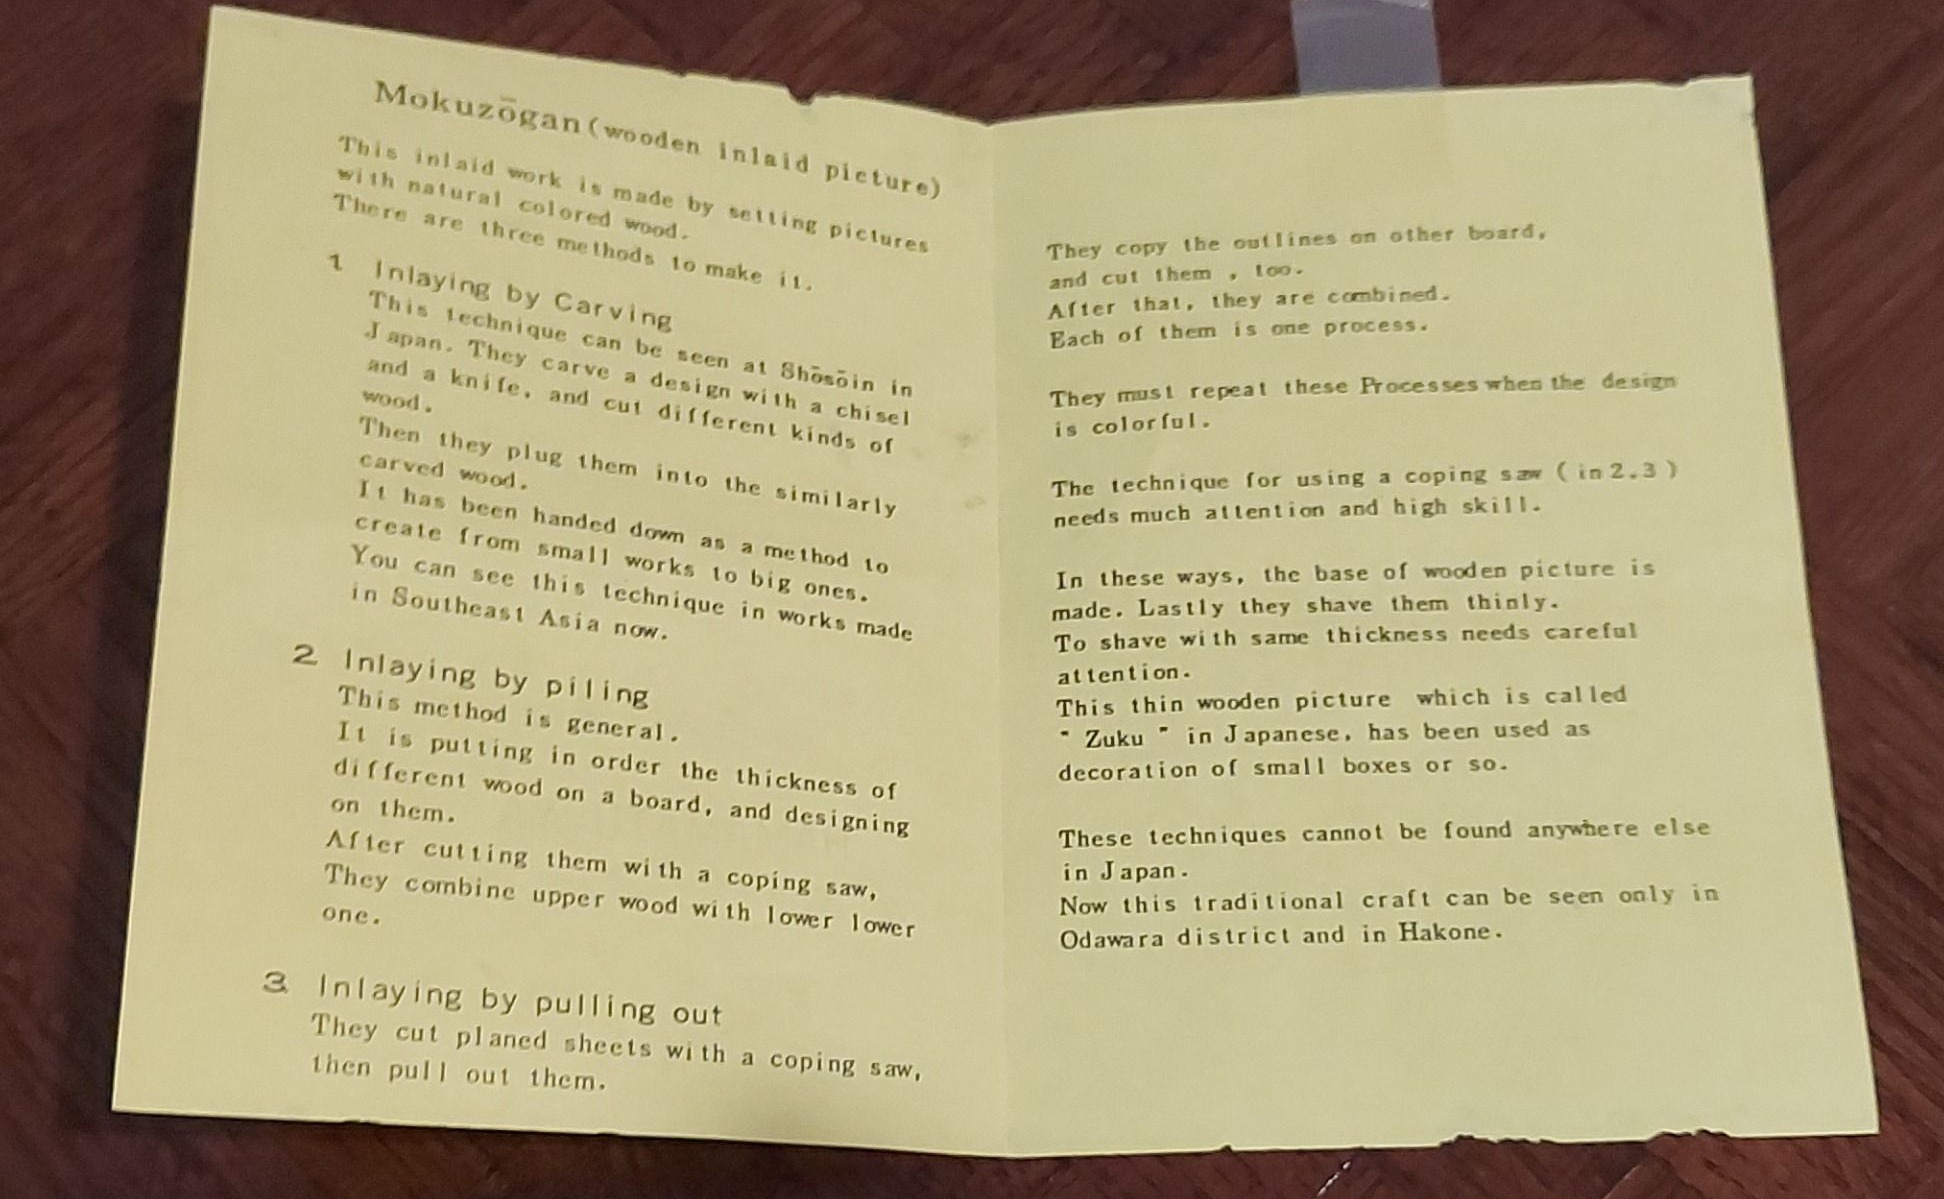 Mokuzōgan(wooden inlaid picture)
This inlaid work is made by setting pictures
with natural colored wood.
There are three methods to make it.
1 Inlaying by Carving
This technique can be seen at Shōsōin in
Japan. They carve a design with a chisel
and a knife, and cut different kinds of
wood.
Then they plug them into the similarly
carved wood.
It has been handed down as a method to
create from small works to big ones.
You can see this technique in works made
in Southeast Asia now.
2 Inlaying by piling
This method is general.
It is putting in order the thickness of
different wood on a board, and designing
on them.
After cutting them with a coping saw,
They combine upper wood with lower lower
one.
3 Inlaying by pulling out
They cut planed sheets with a coping saw,
then pull out them.
They copy the outlines on other board,
and cut them , too.
After that, they are combined.
Each of them is one process.
They must repeat these Processes when the design
is colorful.
The technique for using a coping saw ( in 2.3 )
needs much attention and high skill.
In these ways, the base of wooden picture is
made. Lastly they shave them thinly.
To shave with same thickness needs careful
attention.
This thin wooden picture which is called
" Zuku " in Japanese, has been used as
decoration of small boxes or so.
These techniques cannot be found anywhere else
in Japan.
Now this traditional craft can be seen only in
Odawara district and in Hakone.